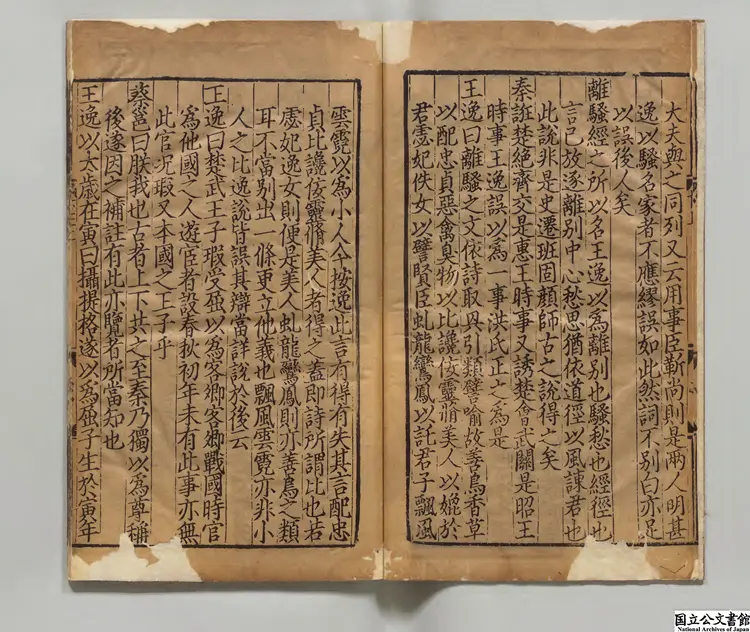 大夫與之同列又云用事臣靳尚則是兩人明甚
逸以騷名家者不應繆誤如此然詞不別白亦足
以誤後人矣
離騷經之所以名王逸以為離別也騷愁也經徑也
言已放逐離別中心愁思猶依道徑以風諫君也
此說非是史遷班固顏師古之說得之矣
秦誑楚絕齊交是惠王時事又誘楚會武關是昭王
時事王逸誤以為一事洪氏正之為是
王逸曰離騷之文依詩取興引類譬喻故善鳥香草
以配忠貞惡禽臭物以比讒佞靈脩美人以媲於
君虙妃佚女以譬賢臣虬龍鸞鳳以託君子飄風
雲霓以為小人今按逸此言有得有失其言配忠
貞比讒佞靈脩美人者得之蓋即詩所謂比也若
虙妃逸女則便是美人虬龍鸞鳳則亦善鳥之類
耳不當別出一條更立他義也飄風雲霓亦非小
人之比逸說皆誤其辯當詳說於後云
王逸曰楚武王子瑕受屈以為客卿客卿戰國時官
為他國之人遊宦者設春秋初年未有此事亦無
此官況瑕又本國之王子乎
蔡邕曰朕我也古者上下共之至秦乃獨以為尊稱
後遂因之補註有此亦覽者所當知也
王逸以太歲在寅曰攝提格遂以為屈子生於寅年
国立公文書館
National Archives of Japan